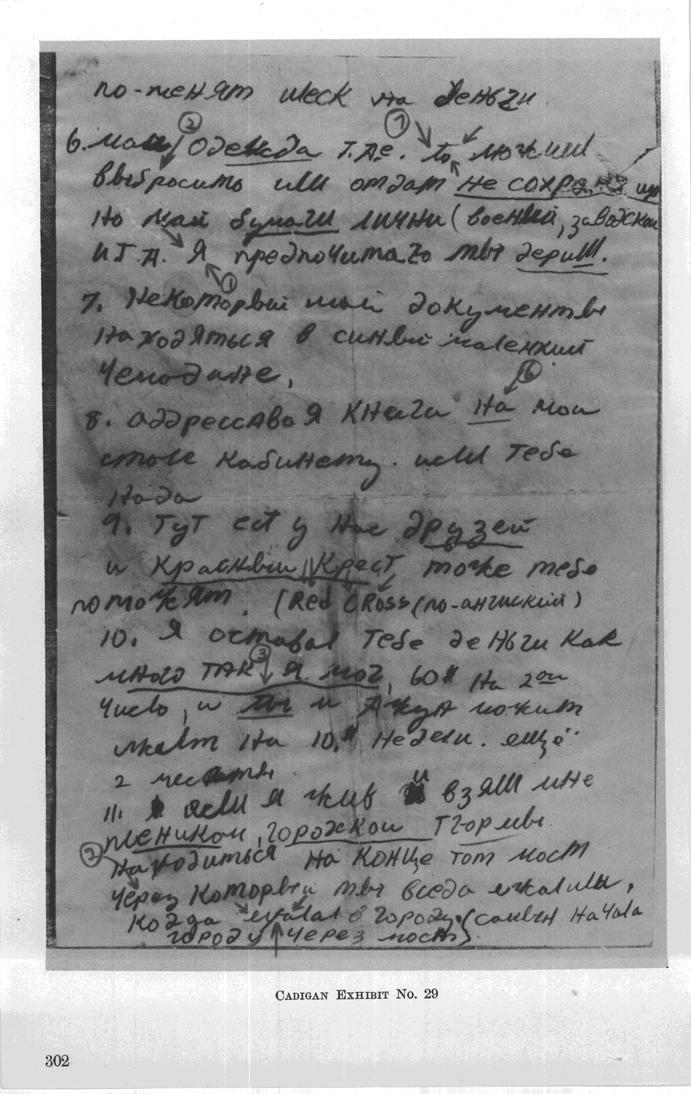 по-менят шеск на деньги
② ①
6. май одежда т.д.е. то можиш
выбросить или отдат не сохра
но май бумаги лични (военый, заводской
и т.д. Я предпочитаго ты держш.
①
7. Некоторвый май документы
находяться в синвый маленкий
чемодане,
⑥
8. аддрессавая книги на мои
столе кабинету. исли тебе
нада
9. тут ест у нас друзей
и Красный Крест тоже тебе
поможят. (Red CRoss (по-ангиский)
10. я оставал тебе деньги как
③
много так я мог, 60$ на 2ои
число, и ты и Джун можит
на 10.$ недели. ещё
2
11. если я жив и взяли мне
пленикои, городскои тгормы
② находиться на конце том мост
через которвый ты всегда ехалили,
когда ехалаl в городу (самвн начала
городу через мост).
CADIGAN EXHIBIT NO. 29
302